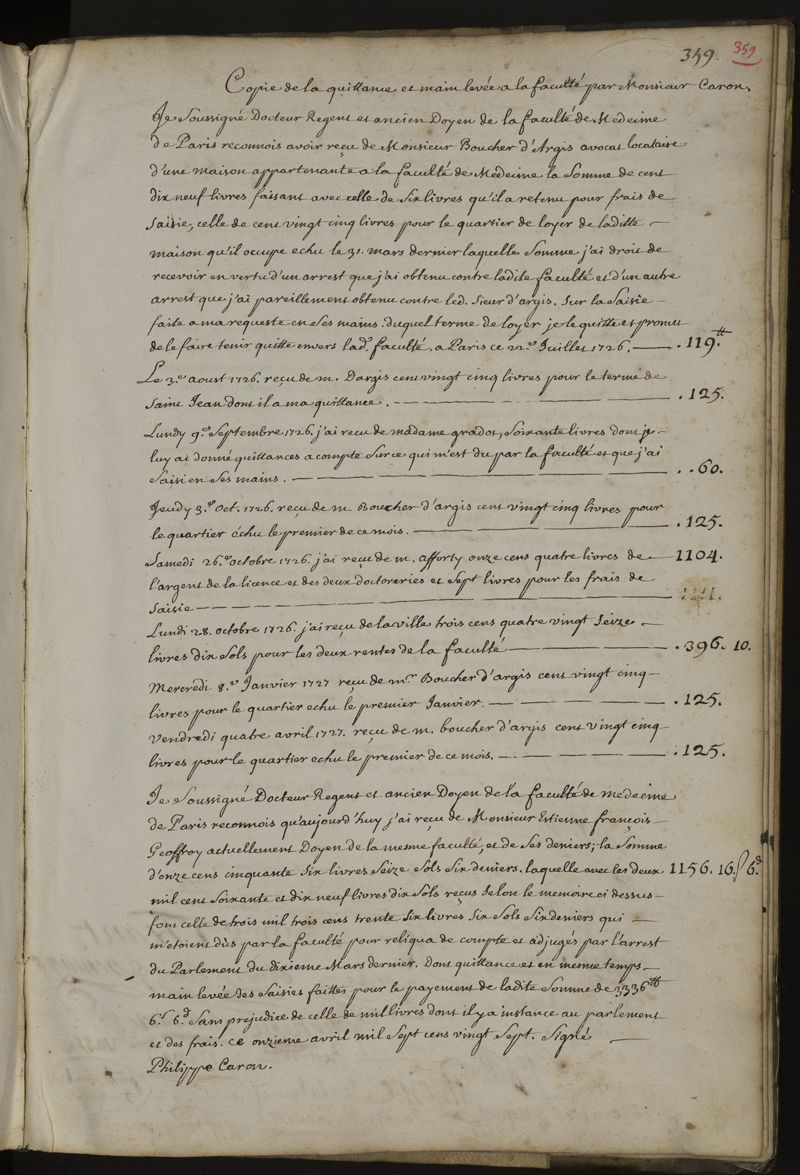 359. 359
Copie de la quittance et main levée a la faculté par Monsieur Caron.
Je Soussigné Docteur Regent et ancien Doyen de la faculté de Medecine
de Paris reconnois avoir reçu de Monsieur Boucher d'Argis avocat locataire
d'une maison appartenante a la faculté de Medecine la Somme de cent
dix neuf livres faisant avec celle de Six livres qu'il a retenu pour frais de
Saisie, celle de cent vingt cinq livres pour le quartier de loyer de laditte
maison qu'il occupe echu le 31. mars dernier laquelle Somme j'ai droit de
recevoir en vertu d'un arrest que j'ai obtenu contre ladite faculté et d'un autre
arrest que j'ai pareillement obtenu contre led. Sieur d'argis. Sur la Saisie
faite a ma requeste en Ses mains. duquel terme de loyer je le quitte et promet
de le faire tenir quitte envers lad.e faculté. a Paris ce 22.e Juillet 1726. — . 119.tt
Le 3.e aoust 1726. reçu de m. Dargis cent vingt cinq livres pour le terme de
Saint Jean dont il a ma quittance. — . 125.
Lundy 9.e Septembre. 1726. j'ai reçu de madame gradot, Soixante livres dont je
luy ai donné quittances a compte Sur ce qui m'est du par la faculté et que j'ai
Saisi en Ses mains. — . . 60.
Jeudy 3.e Oct. 1726. reçu de m. Boucher d'argis cent vingt cinq livres pour
le quartier échu le premier de ce mois. — . 125.
Samedi 26.e octobre 1726. j'ai reçu de m. afforty onze cens quatre livres de — 1104.
l'argent de la licence et des deux doctoreries et Sept livres pour les frais de
Saisie —
Lundi 28. octobre 1726. j'ai reçu de la ville trois cens quatre vingt Seize
livres dix Sols pour les deux rentes de la faculté — . 396. 10.
Mercredi 8.e Janvier 1727 reçu de m.r Boucher d'argis cent vingt cinq
livres pour le quartier echu le premier Janvier. — . 125.
Vendredi quatre avril 1727. reçu de m. boucher d'argis cent vingt cinq
livres pour le quartier echu le premier de ce mois. — . 125.
Je Soussigné Docteur Regent et ancien Doyen de la faculté de medecine
de Paris reconnois qu'aujourd'huy j'ai reçu de Monsieur Estienne françois
Geoffroy actuellement Doyen de la mesme faculté, et de Ses deniers; la Somme
d'onze cens cinquante Six livres Seize Sols Six deniers. laquelle avec les deux 1156. 16.s 6.d
mil cent Soixante et dix neuf livres dix Sols reçus Selon le memoire ci dessus
font celle de trois mil trois cens trente Six livres Six Sols Six deniers qui
m'etoient dûs par la faculté pour reliqua de compte et adjugés par l'arrest
du Parlement du dixieme Mars dernier. Dont quittance et en mesme temps
main levée des Saisies faittes pour le payement de ladite Somme de 3336tt
6.s 6.d Sans prejudice de celle de mil livres dont il y a instance au parlement
et des frais. ce onzieme avril mil Sept cens vingt Sept. Signé
Philippe Caron.